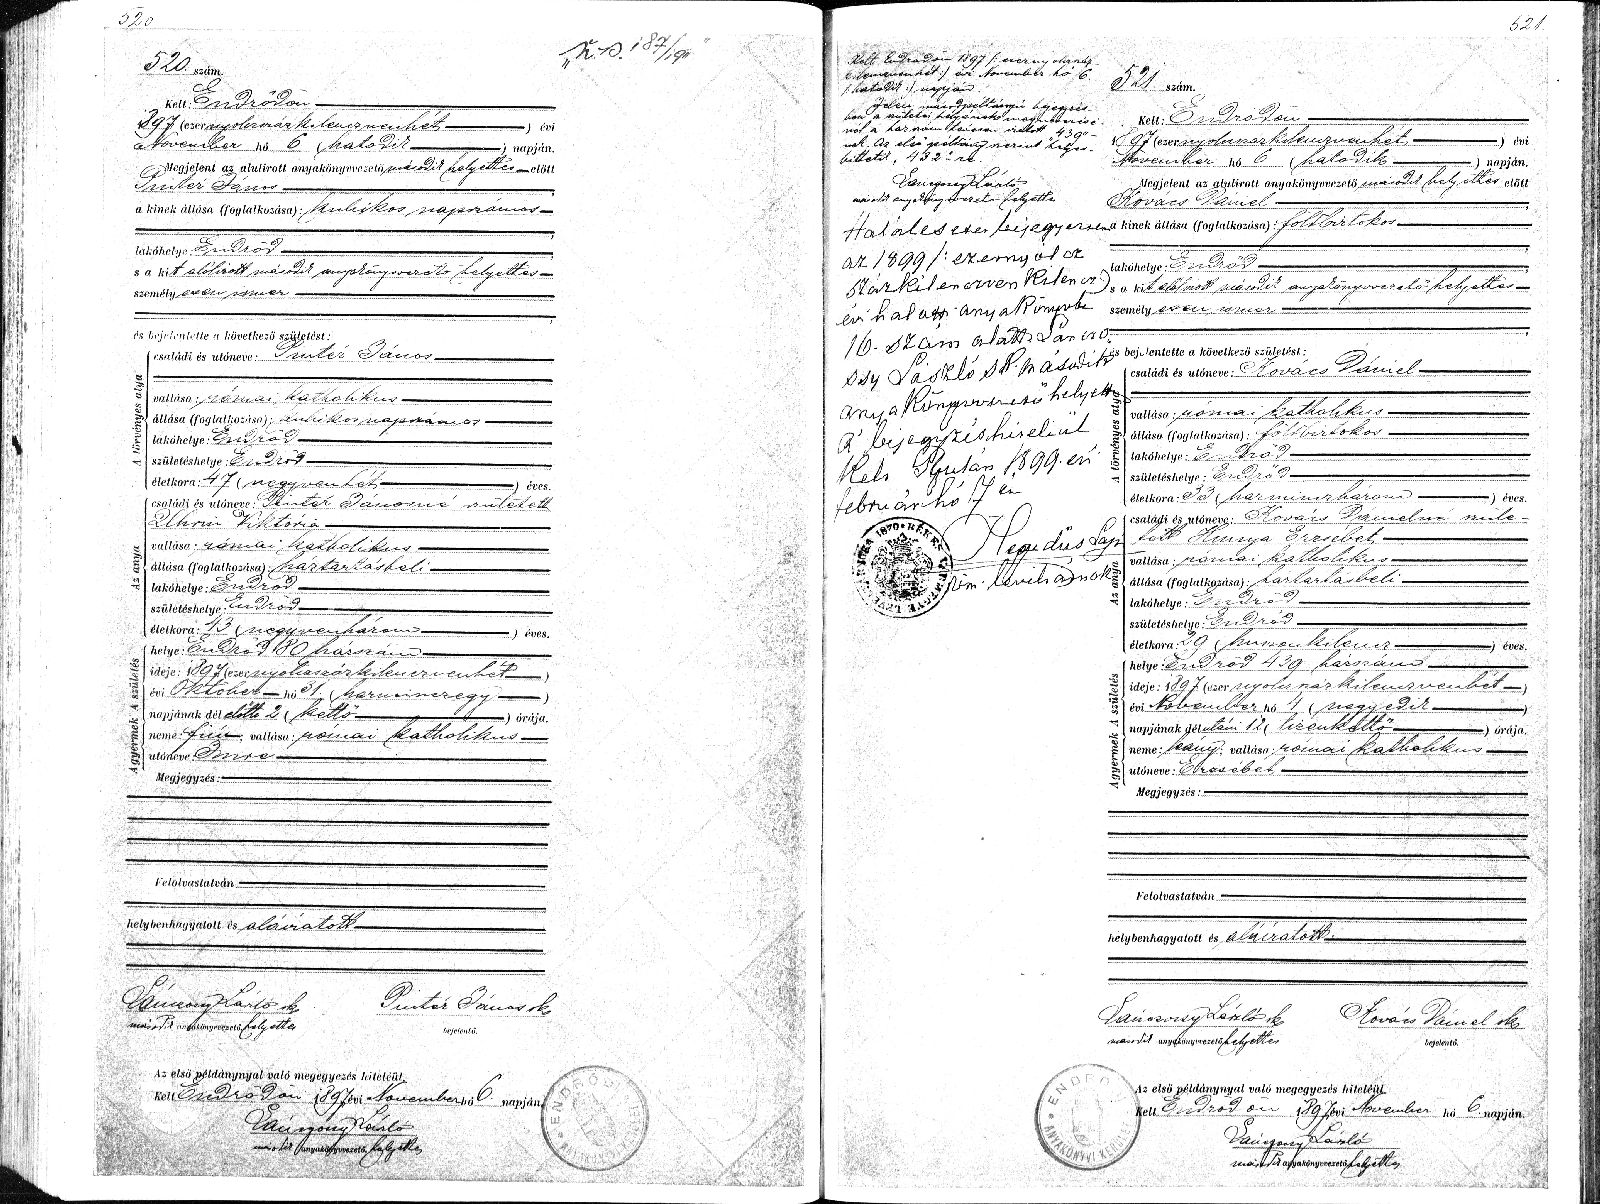 520
520. szám.
Kelt: Endrődön
1897 (ezernyolczszázkilenczvenhét) évi
November hó 6 (hatodik) napján.
Megjelent az alulirott anyakönyvvezető második helyettes előtt
Pintér János
a kinek állása (foglalkozása): kubikos napszámos
lakóhelye: Endrőd
s a kit alólirott második anyakönyvvezető helyettes
személyesen ismer
és bejelentette a következő születést:
A törvényes atya
családi és utóneve: Pintér János
vallása: római katholikus
állása (foglalkozása): kubikos napszámos
lakóhelye: Endrőd
születéshelye: Endrőd
életkora: 47 (negyvenhét) éves.
Az anya
családi és utóneve: Pintér Jánosné született
Uhrin Viktória
vallása: római katholikus
állása (foglalkozása): háztartásbeli
lakóhelye: Endrőd
születéshelye: Endrőd
életkora: 43 (negyvenhárom) éves.
A születés
helye: Endrőd 80 házszám
ideje: 1897 (ezernyolczszázkilenczvenhét)
évi Október hó 31 (harminczegy)
napjának délelőtt 2 (kettő) órája.
A gyermek
neme: fiú; vallása: római katholikus
utóneve: Imre
Megjegyzés:
Felolvastatván
helybenhagyatott és aláiratott
Lánczosy László sk Pintér János sk
második anyakönyvvezető helyettes bejelentő.
Az első példánynyal való megegyezés hiteléül
Kelt Endrődön 1897 évi November hó 6. napján.
Lánczosy László
második anyakönyvvezető helyettes
521.
Kelt Endrődön 1897 (: ezernyolczszáz
kilenczvenhét :) évi November hó 6.
(: hatodik :) napján.
Lánczosy László
második anyakönyvvezető helyettes
Halálesete bejegyezve
az 1899 (: ezernyolcz
százkilenczvenkilencz:)
évi halálozási anyakönyvbe
16. szám alatt Láncz
osy László sk. második
anyakönyvvezető helyettes
A bejegyzés hiteléül
Kelt Gyulán 1899. évi
február hó 17 én
Hegedűs
521 szám.
Kelt: Endrődön
1897 (ezernyolczszázkilenczvenhét) évi
November hó 6 (hatodik) napján.
Megjelent az alulirott anyakönyvvezető második helyettes előtt
Kovács Dániel
a kinek állása (foglalkozása): földbirtokos
lakóhelye: Endrőd
s a kit alólirott második anyakönyvvezető helyettes
személyesen ismer
és bejelentette a következő születést:
A törvényes atya
családi és utóneve: Kovács Dániel
vallása: római katholikus
állása (foglalkozása): földbirtokos
lakóhelye: Endrőd
születéshelye: Endrőd
életkora: 33 (harminczhárom) éves.
Az anya
családi és utóneve: Kovács Dánielné szüle-
tett Hunya Erzsébet
vallása: római katholikus
állása (foglalkozása): háztartásbeli
lakóhelye: Endrőd
születéshelye: Endrőd
életkora: 29 (huszonkilencz) éves.
A születés
helye: Endrőd 439 házszám
ideje: 1897 (ezernyolczszázkilenczvenhét)
évi November hó 4 (negyedik)
napjának délutáni 12 (tizenkettő) órája.
A gyermek
neme: leány; vallása: római katholikus
utóneve: Erzsébet
Megjegyzés:
Felolvastatván
helybenhagyatott és aláiratott.
Lánczosy László sk Kovács Dániel sk
második anyakönyvvezető helyettes bejelentő.
Az első példánynyal való megegyezés hiteléül
Kelt Endrődön 1897 évi November hó 6 napján.
Lánczosy László
második anyakönyvvezető helyettes